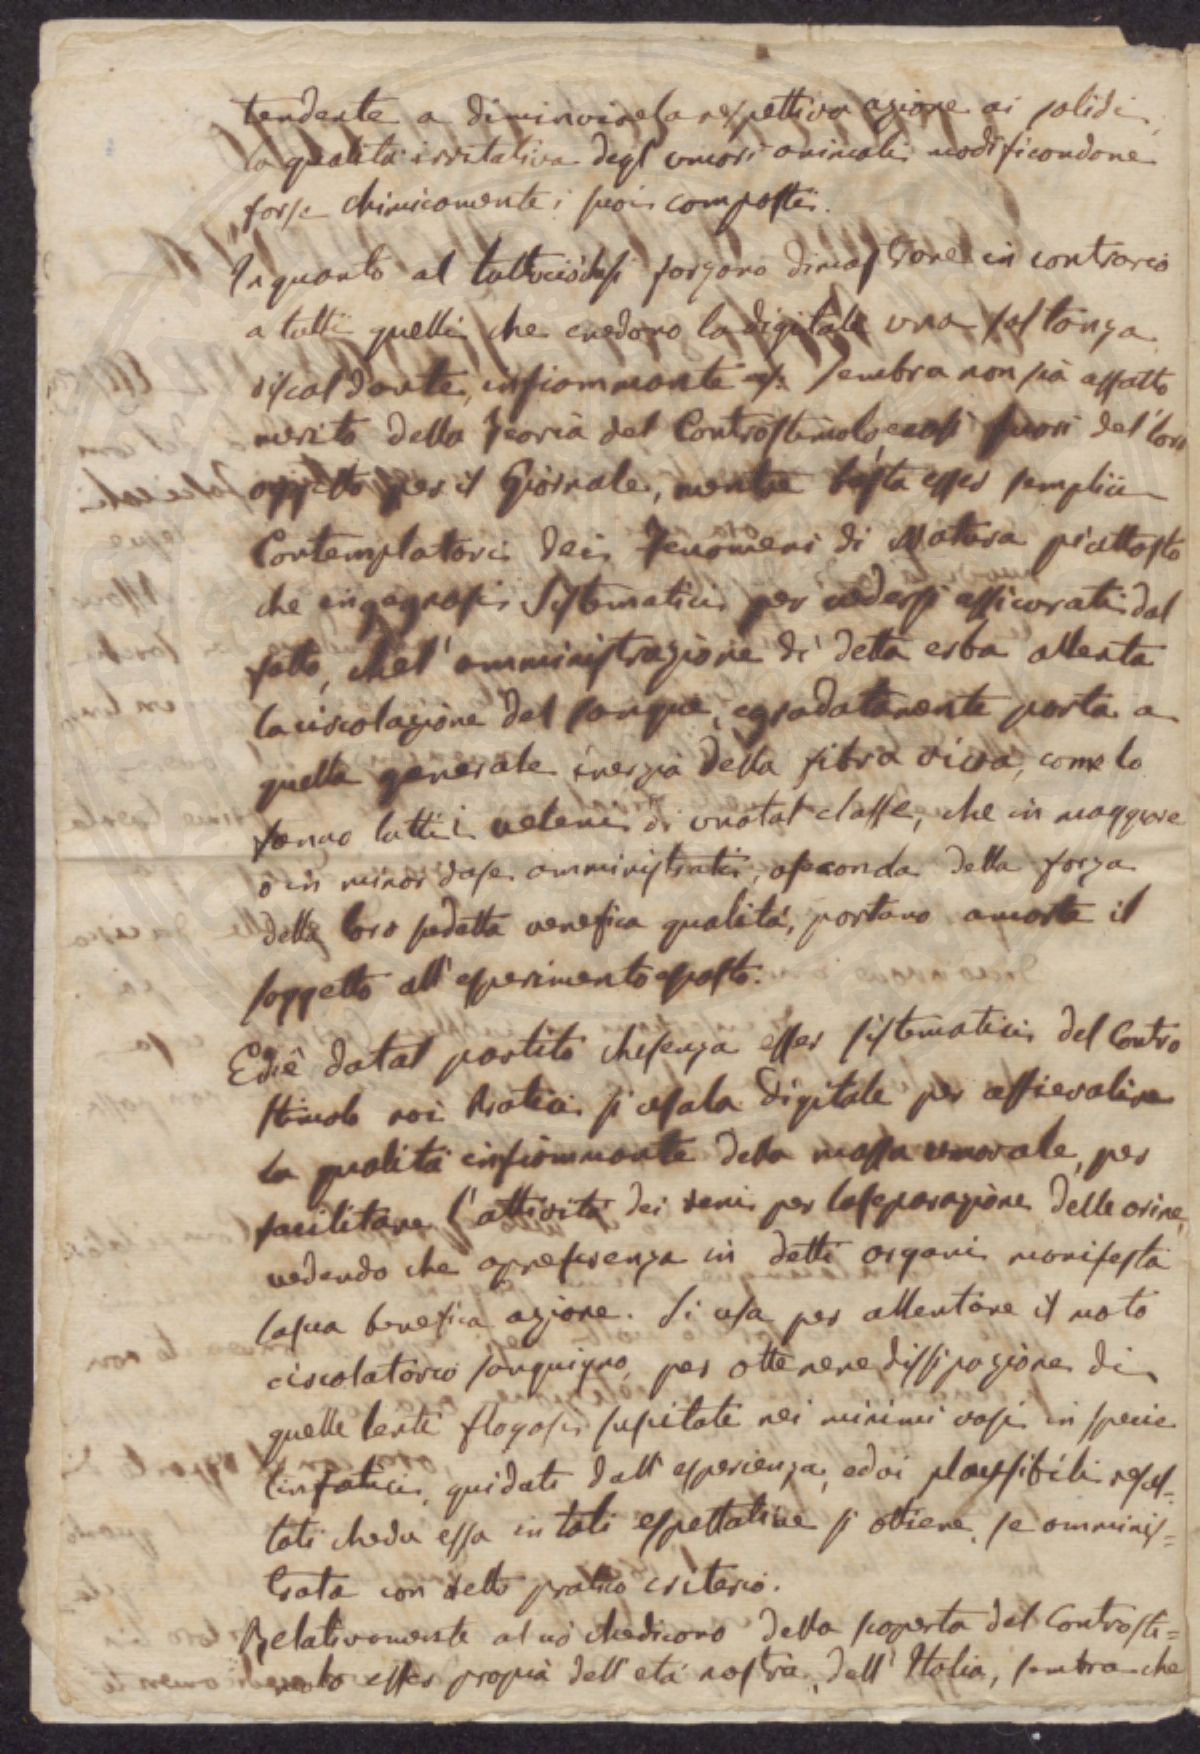 tendente a diminuirela respettiva azione ai solidi,
la qualità irritativa degl' umori animali modificandone
forse chimicamente i suoi composti.
In quanto al tuttociòchesi sforzano dimostrare in contrario
a tutti quelli che credono la digitale una sostanza
riscaldante, infiammante sembra non sia affatto
merito della Teoria del Controstimolo fuori del loro
oggetto per il Giornale, mentre basta esser semplici
Contemplatori dei Fenomeni di Natura piuttosto
che ingegnosi Sistematici per vedersi assicurati dal
fatto, chel' amministrazione di detta erba allenta
la circolazione del sangue, egradatamente porta a
quella generale inerzia della fibra viva, come lo
fanno tutti i veleni di unatal classe, che in maggiore
o in minor dose amministrati, aseconda della forza
della loro sudetta venefica qualità, portano amorte il
soggetto all' esperimento esposto.
Ediè datal partito chesenza esser sistematici del Contro
stimolo noi Pratici si usala digitale per affievolire
la qualità infiammante della massa umorale, per
facilitare l'attività dei reni per laseparazione delle orine,
vedendo che apreferenza in detti organi manifesta
lasua benefica azione. Si usa per allentare il moto
circolatorio sanguigno, per ottenere dissipazione di
quelle lenti flogosi suscitate nei minimi vasi in specie
linfatici, guidati dall' esperienza, edai plausibili resul-
tati cheda essa in tali espettative si ottiene, se amminis=
trata con retto pratico criterio.
Relativamente al ciò chedicono della scoperta del Controsti=
molo esser propria dell' età nostra, dell' Italia, sembra che